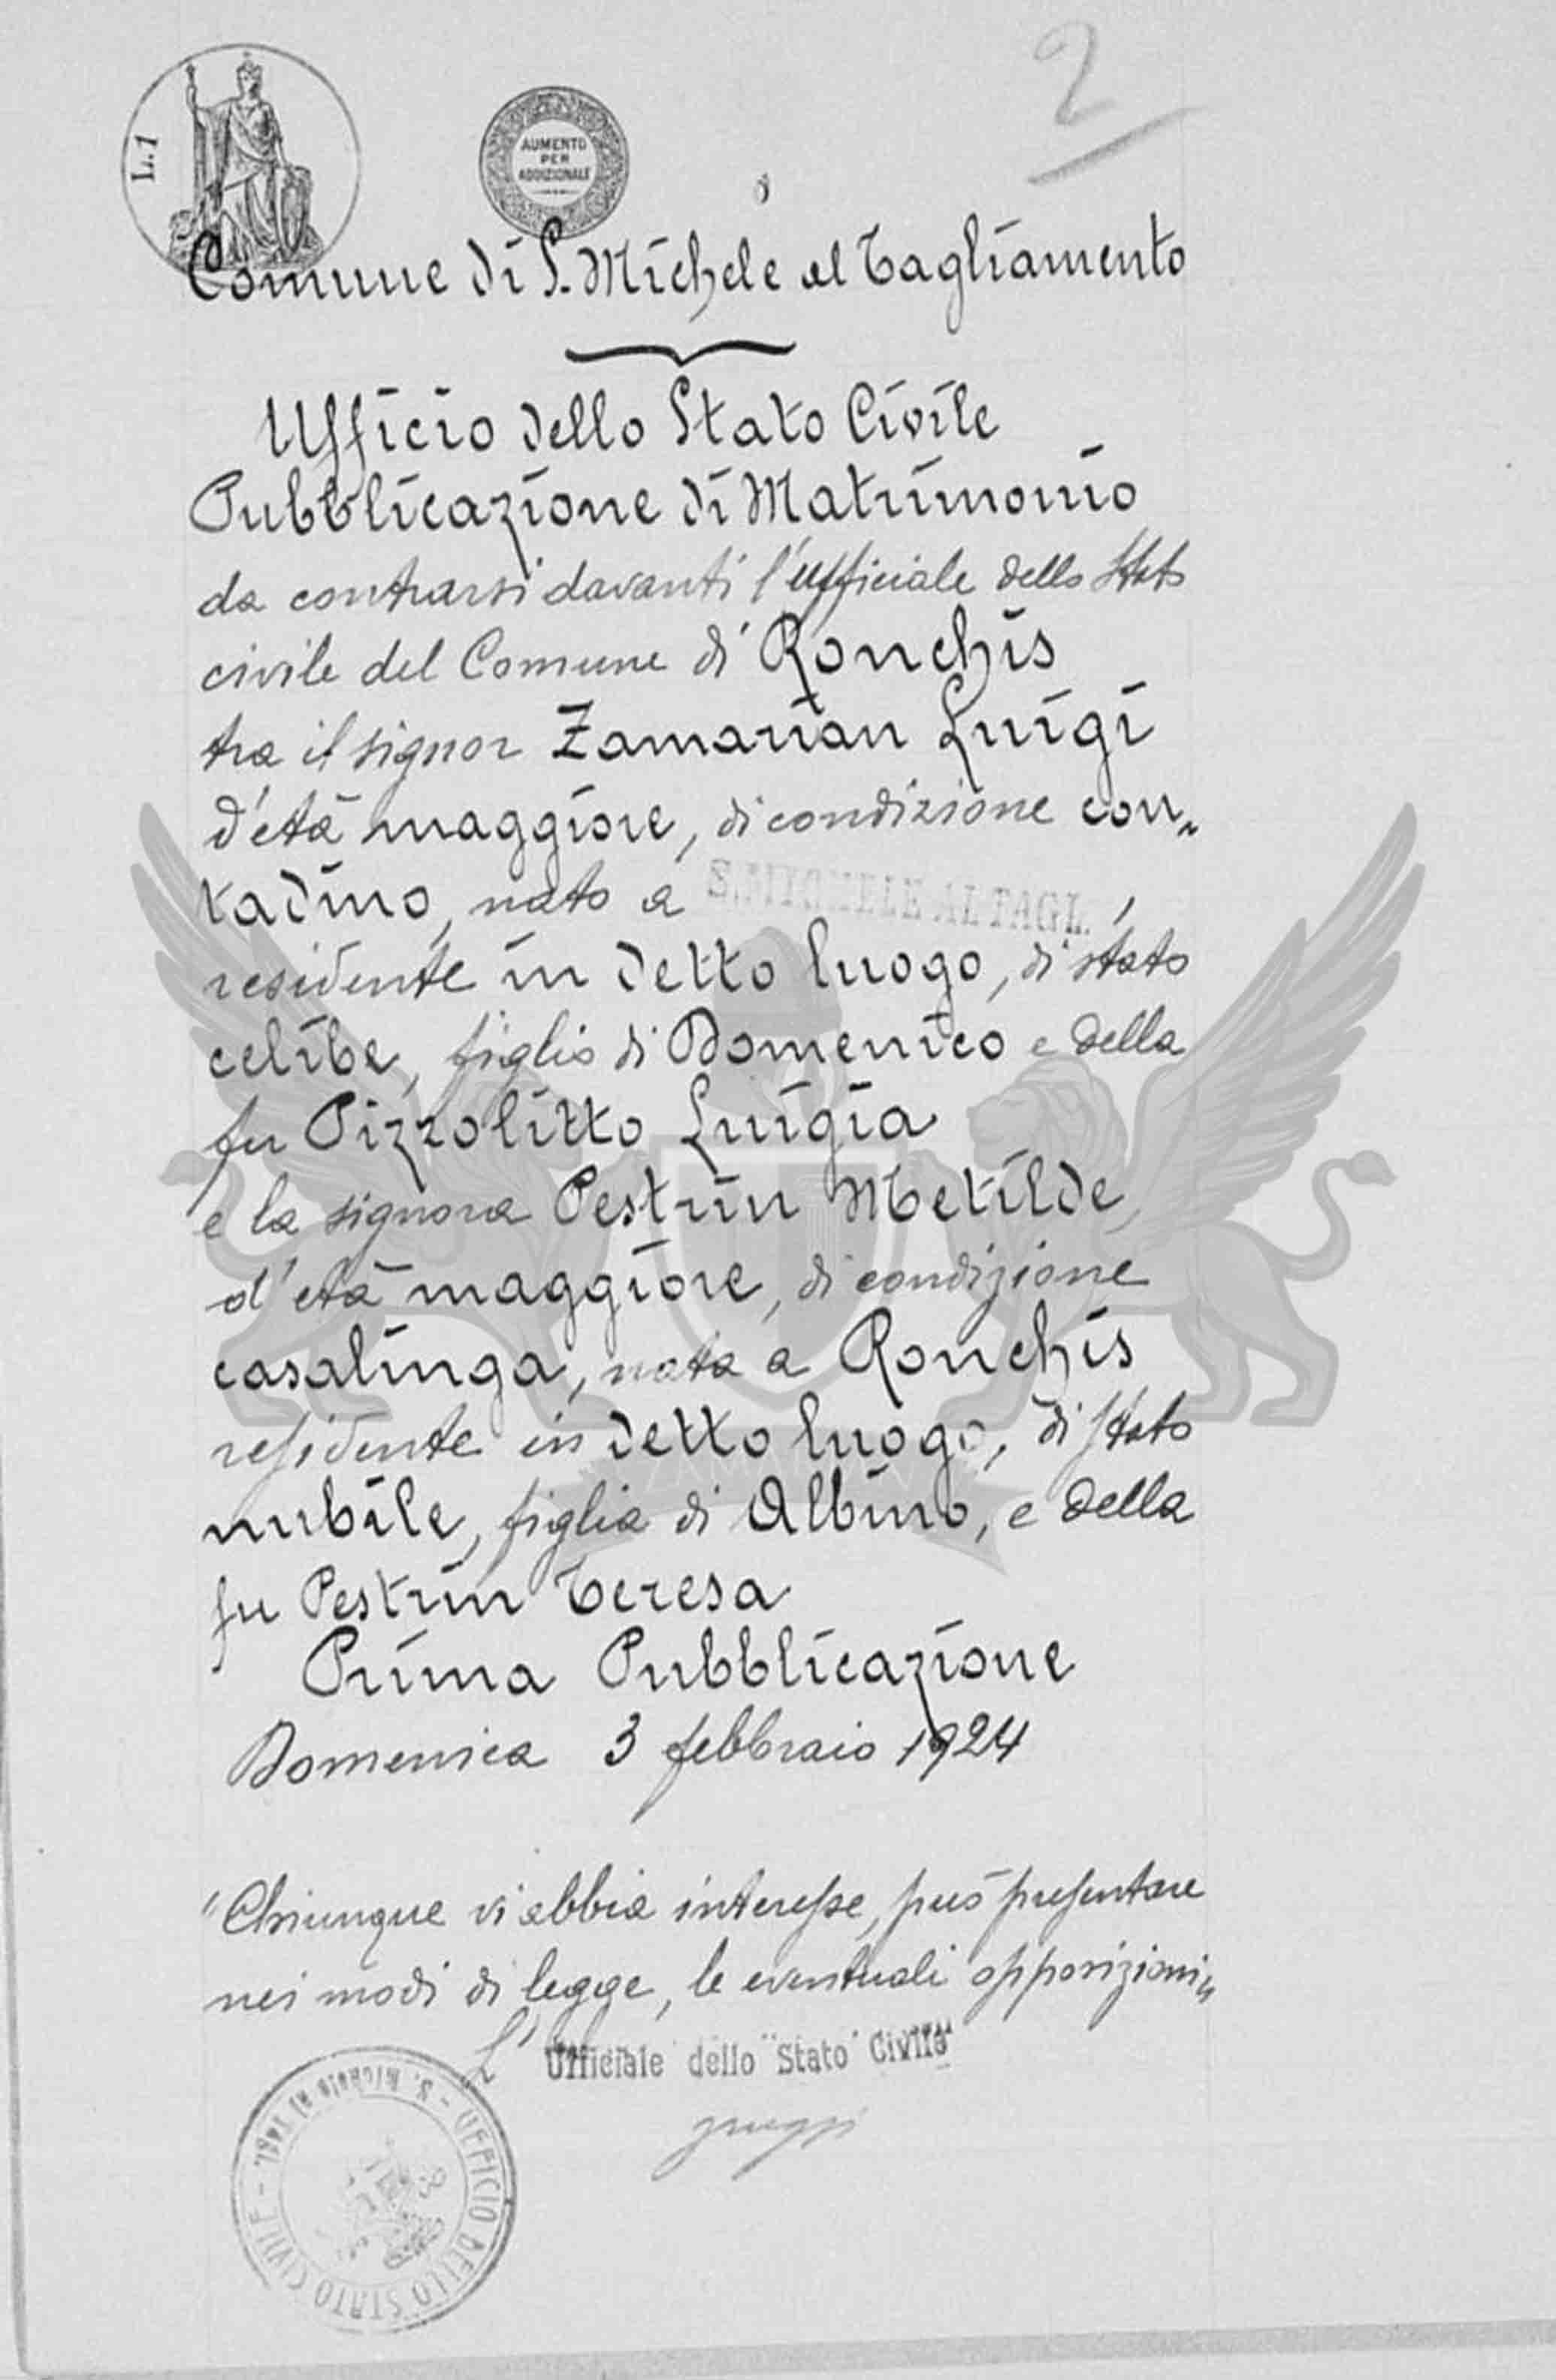 2
L. 1
AUMENTO
PER
ADDIZIONALE
Comune di S. Michele al Tagliamento
Ufficio dello Stato Civile
Pubblicazione di Matrimonio
da contrarsi davanti l'ufficiale dello Stato
civile del Comune di Ronchis
tra il signor Zamarian Luigi
d'età maggiore, di condizione con„
tadino, nato a S. MICHELE AL TAGL.,
residente in detto luogo, di stato
celibe, figlio di Domenico e della
fu Pizzolitto Luigia
e la signora Pestrin Metilde,
d'età maggiore, di condizione
casalinga, nata a Ronchis
residente in detto luogo, di stato
nubile, figlia di Albino, e della
fu Pestrin Teresa
Prima Pubblicazione
Domenica 3 febbraio 1924
"Chiunque vi abbia interesse, può presentare
nei modi di legge, le eventuali opposizioni„
L'Ufficiale dello Stato Civile
S. Michele al Tagl. - UFFICIO DELLO STATO CIVILE -